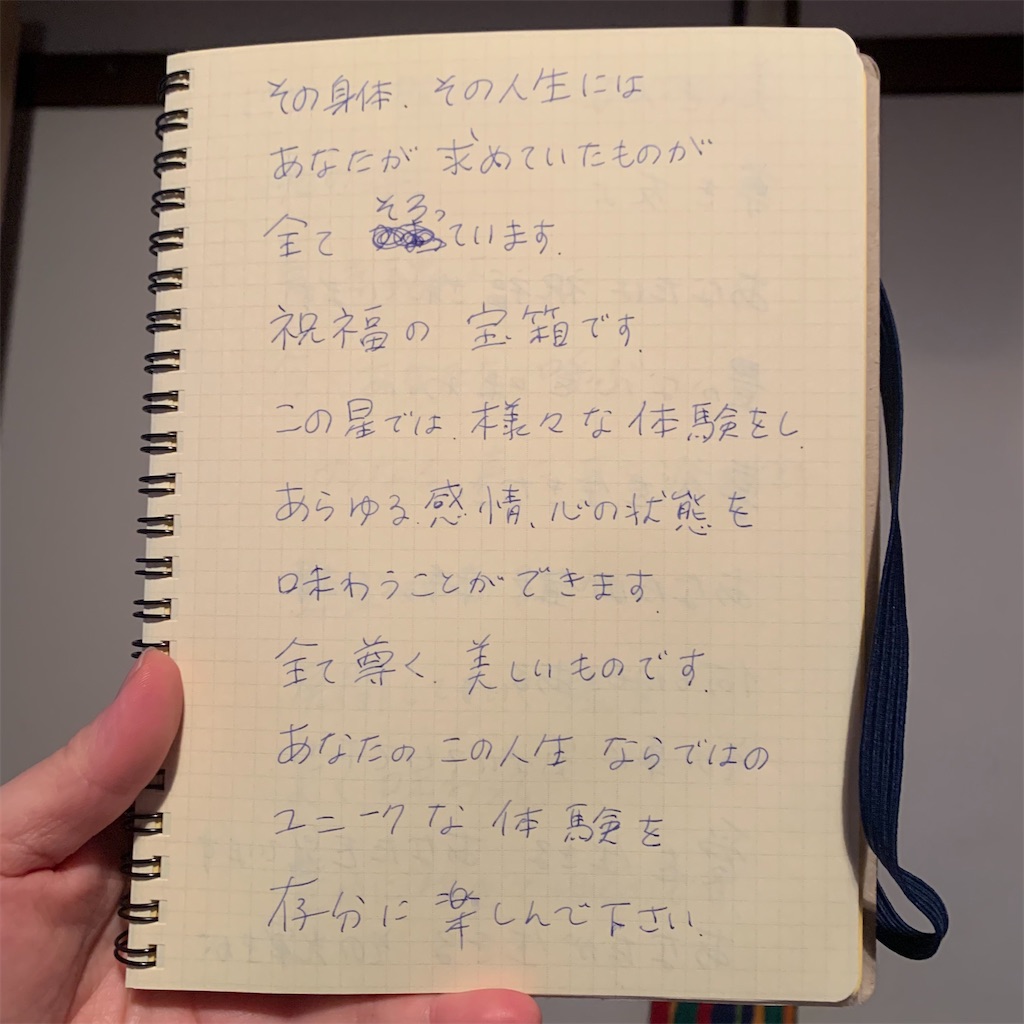 その身体、その人生には
あなたが 求めていたものが
全て そろっています。
祝福の 宝箱です。
この星では、様々な体験をし、
あらゆる感情、心の状態を
味わうことができます。
全て尊く、美しいものです。
あなたの この人生 ならではの
ユニークな 体験を
存分に 楽しんで下さい。